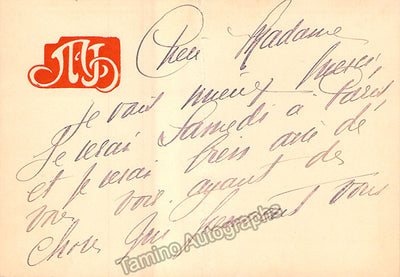 Chère Madame
Je vais mieux, merci,
Je serai Samedi à Paris
et je serai bien aise de
vous voir ayant des
choses
vous
Tamino Autographs